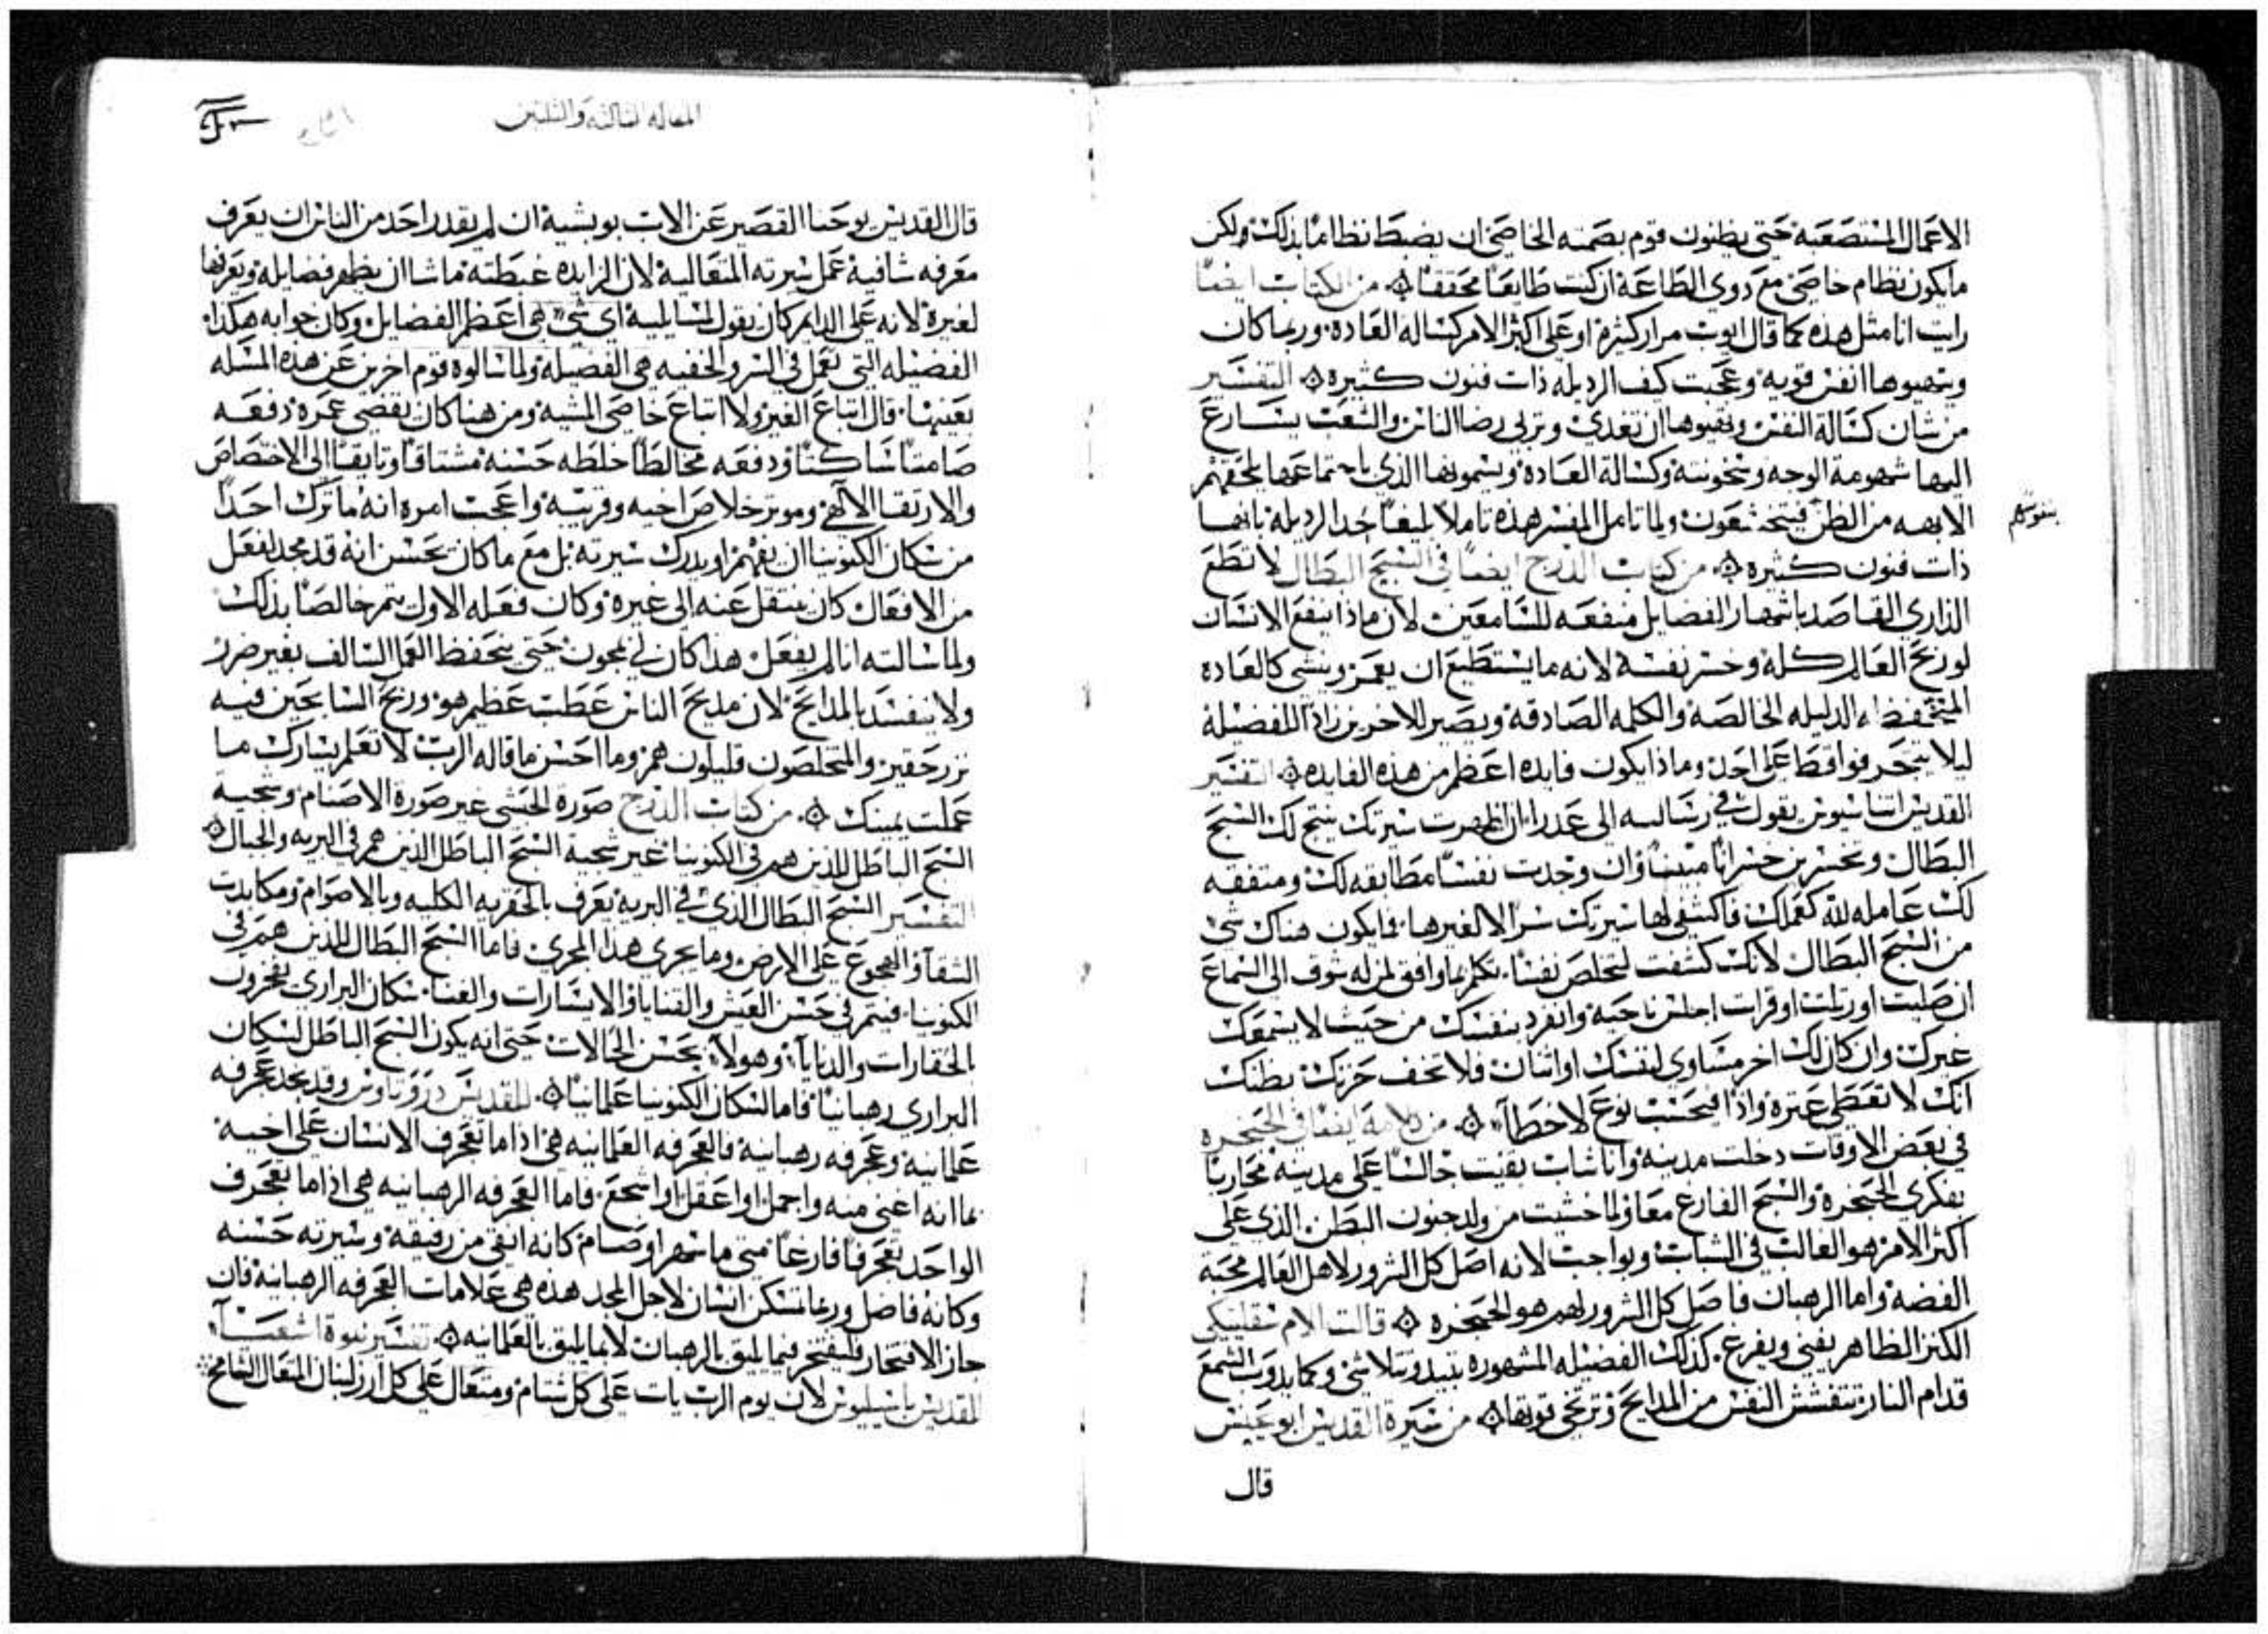 الاعمال المستصعبة حتى يظنون قوم بصمته الخاصي ان يضبط نظاما بذلك ولكن
مايكون نظام خاصي مع ذوي الطاعة ان كنت طايعا محققا من الكتاب ايضا
رايت انا مثل هذه كما قال ايوب مرار كثيرة او على اكثر الامر كساله العادة وربما كان
وينهبوها انفس قوية وعجبت كيف الرذيله ذات فنون كثيرة التفسير
من شان كسالة النفس وتقبوها ان تغدي وتربي رضا الناس والشعب يتسارع
اليها شهومة الوجه وسخونته وكسالة العادة ويسمونها الذي باجتماعها يلحقهم
الابهه من الظن فيتخشعون ولما تامل المفسر هذه تاملا بليغا حدد الرذيله بانها
بنفوسكم
ذات فنون كثيره من كتاب الدرج ايضا في السبح البطال لا تطع
الذاري القاصد باشهار الفضايل منفعه للسامعين لان ماذا ينفع الانسان
لو ربح العالم كله وخسر نفسه لانه ما يستطيع ان يعمر وينشي كالعادة
المتحفظه الذليله الخالصة والكلمه الصادقة ويصير للاخرين زاد اللفضيلة
ليلا يتجرفوا قط على احد وماذا يكون فايده اعظم من هذه الفايده التفسير
القديس اتناسيوس يقول في رسالسه الى عدرا ان اظهرت سيرتك ينتج لك السبح
البطال وتخسرين خسرانا مبينا وان وجدت نفسا مطابقه لك ومتفقه
لك عامله لله كعملك فاكشفي لها سيرتك سرا لا لغيرها فما يكون هناك شي
من السبح البطال لانك كشفت لتخلص نفسا تكلم بما وافق لمن له شوق الى السماع
ان صليت او رتلت او قرات اجلس ناحية وانفرد بنفسك من حيث لا يسمعك
غيرك وان كان لك اخر مساوي لنفسك او اثنان فلا تخف حزنك بظنك
انك لا تعطي عثرة واذا فيحسب نوع لا خطا من كلامه ايضا في الحنجره
في بعض الاوقات دخلت مدينه وانا شاب بقيت جالسا على مدينه محاربا
بفكري الحنجرة والسبح الفارغ معا ولما خشيت من ولد جنون البطن الذي على
اكثر الامر هو الغالب في الشباب وبواجب لانه اصل كل الشرور لاهل العالم محبة
الفضة واما الرهبان فاصل كل الشرور لهم هو الحنجره قالت الام سنقليتيكي
الكنز الظاهر يفنى ويفرغ كذلك الفضيله المشهوره تبيد وتتلاشى وكما يذوب الشمع
قدام النار تتفشش النفس من المدايح وترتخي قوتها من سيرة القديس ابو عيش
قال
المقاله الثالثه والثلثين
قال القديس يوحنا القصير عن الاب بويشية ان لم يقدر احد من الناس ان يعرف
معرفه شافية عمل سيرته المتعالية لان الزايده غبطته ماشا ان يظهر فضايله ويعرفها
لغيره لانه على الدايم كان يقول لمسايليه اي شي هي اعظم الفضايل وكان جوابه هكذا
الفضيله التي تعمل في السر والخفيه هي الفضيلة ولما سالوه قوم اخرين عن هذه المسله
بعينها قال اتباع الغير ولا اتباع خاصي المشيه ومن هنا كان يقضي عمره دفعه
صامتا ساكتا ودفعه مخالطا خلطه حسنه مشتاقا وتايقا الى الاختصاص
والارتقا الالهي وموثر خلاص اخيه وقريبه واعجب امره انه ما ترك احدا
من سكان الكنوبيا ان يفهم او يدرك سيرته بل مع ما كان يحس انه قد مجد لفعل
من الافعال كان ينتقل عنه الى غيره وكان فعله الاول يتم خالصا بذلك
ولما سالته انا لم يفعل هذا كان لي يجون حتى يتحفظ العمل السالف بغير ضرر
ولا ينفسد بالمدايح لان مديح الناس عطب عظيم هو وربح السابحين فيه
نزر حقير والمتخلصون قليلون هم وما احسن ما قاله الرب لا تعلم يسارك ما
عملت يمينك من كتاب الدرج صورة الخشى غير صورة الاصنام وسجية
السبح الباطل للذين هم في الكنوبيا غير سجية السبح الباطل الذين هم في البريه والجبال
التفسير السبح البطال الذي في البريه يعرف بالحقريه الكليه وبالاصوام ومكابدت
الشقا والهجوع على الارض وما يجري هذا المجرى فاما السبح البطال للذين هم في
الكنوبيا فيتم في حسن العيش والقنايا والايسارات والغنا سكان البراري يفخرون
بالحقارات والدنايا وهولا بحسن الحالات حتى انه يكون السبح الباطل لسكان
البراري رهبانيا فاما لسكان الكنوبيا علمانيا للقديس دروتاوس وقد يجد عجرفه
علمانية وعجرفه رهبانية فالعجرفه العلمانيه هي اذا ما تعجرف الانسان على اخيه
بما انه اغنى منه واجمل او اعقل او اشجع فاما العجرفه الرهبانيه هي اذا ما تعجرف
الواحد تعجرفا فارغا متى ما سهر او صام كانه اتقى من رفيقه وسيرته حسنه
وكانه فاضل وربما تمسكن انسان لاجل المجد هذه هي علامات العجرفه الرهبانية فان
جاز الافتخار فليفتخر فيما يليق بالرهبان لا بما يليق بالعلمانيه تفسير نبوة اشعيا
للقديس باسيليوس لان يوم الرب يات على كل شتام ومتعال على كل ارز لبنان المتعال الشامخ